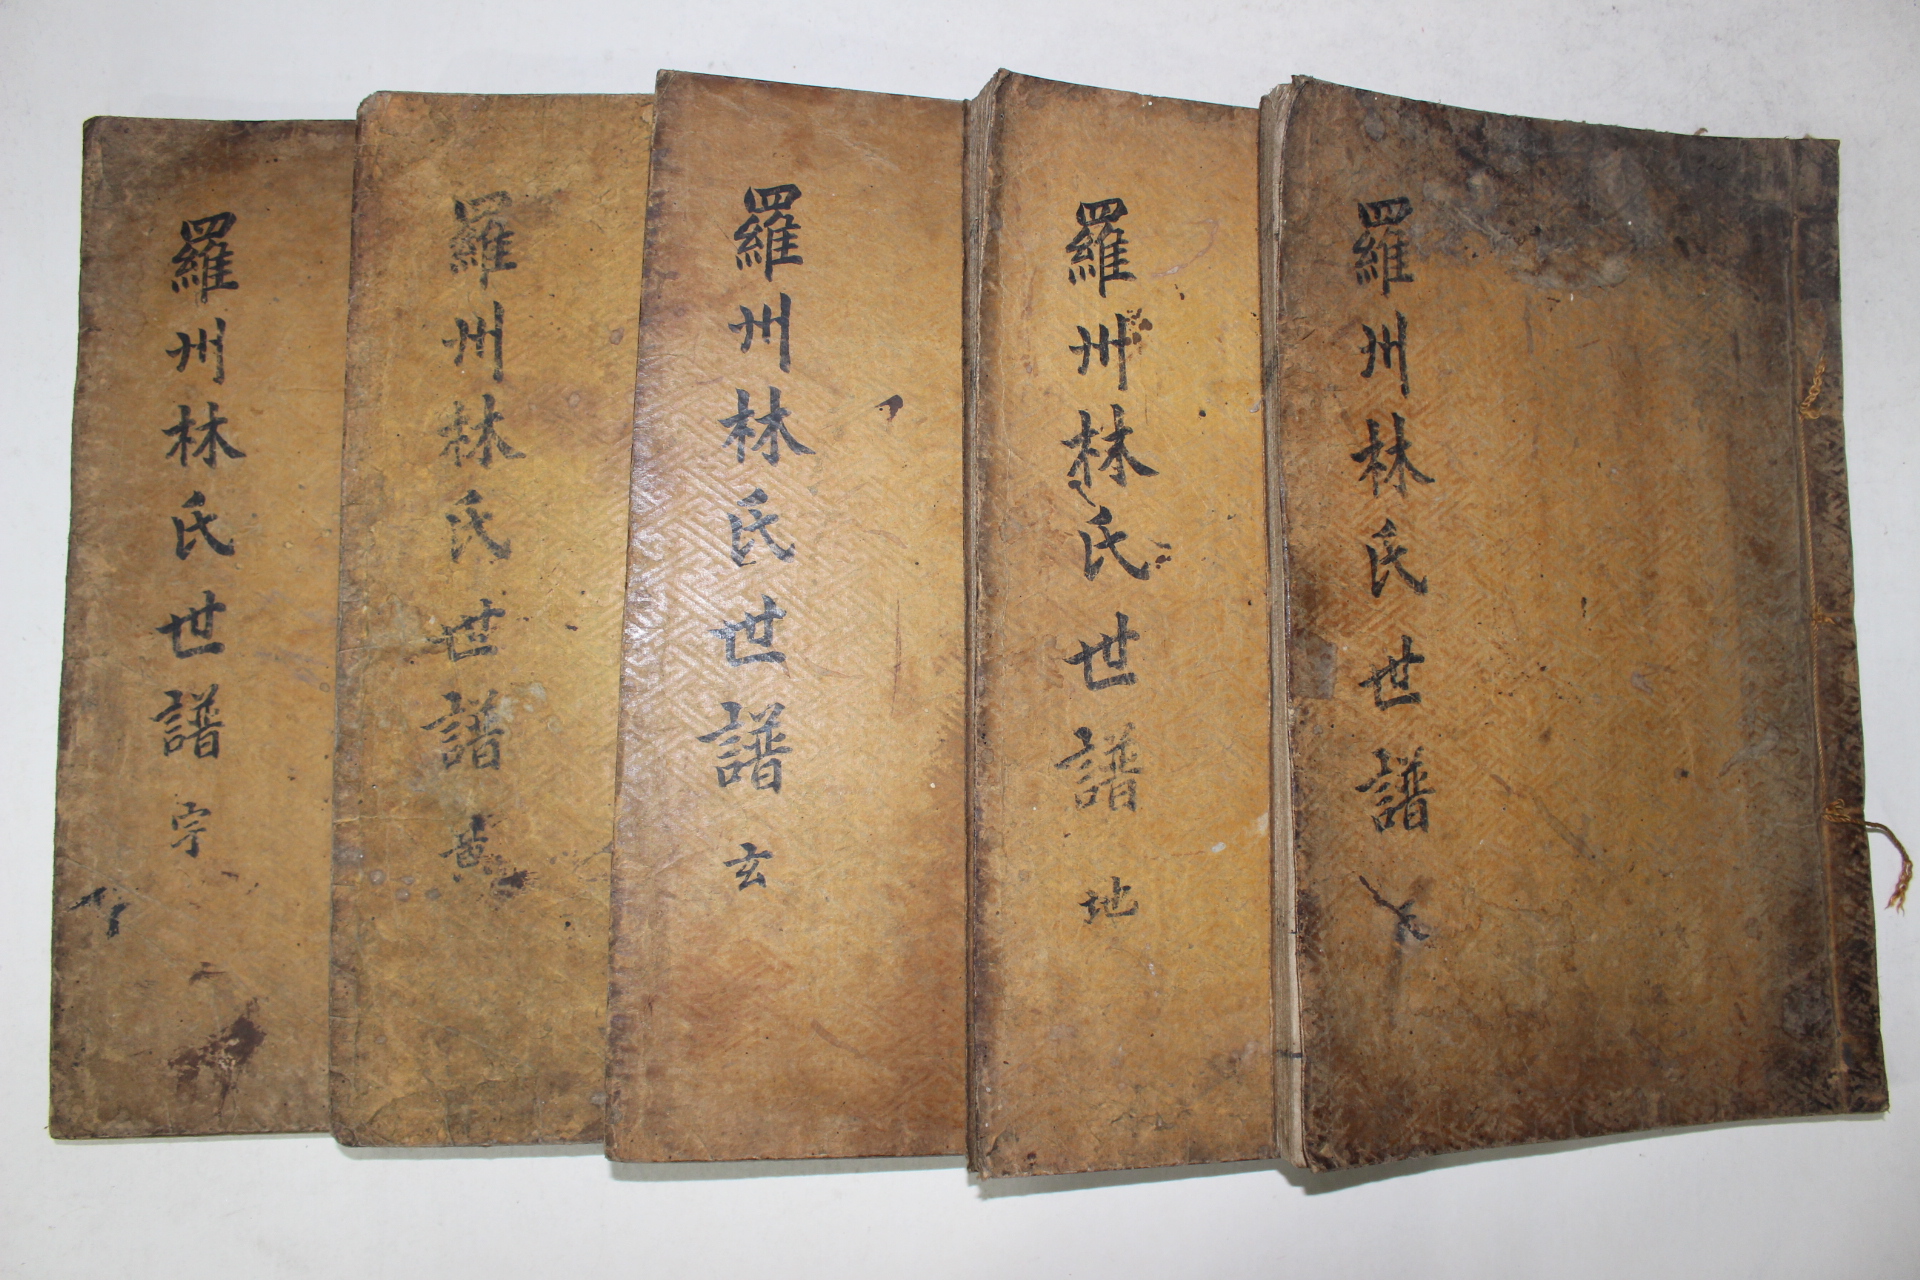 羅州林氏世譜 天
羅州林氏世譜 地
羅州林氏世譜 玄
羅州林氏世譜 黃
羅州林氏世譜 宇